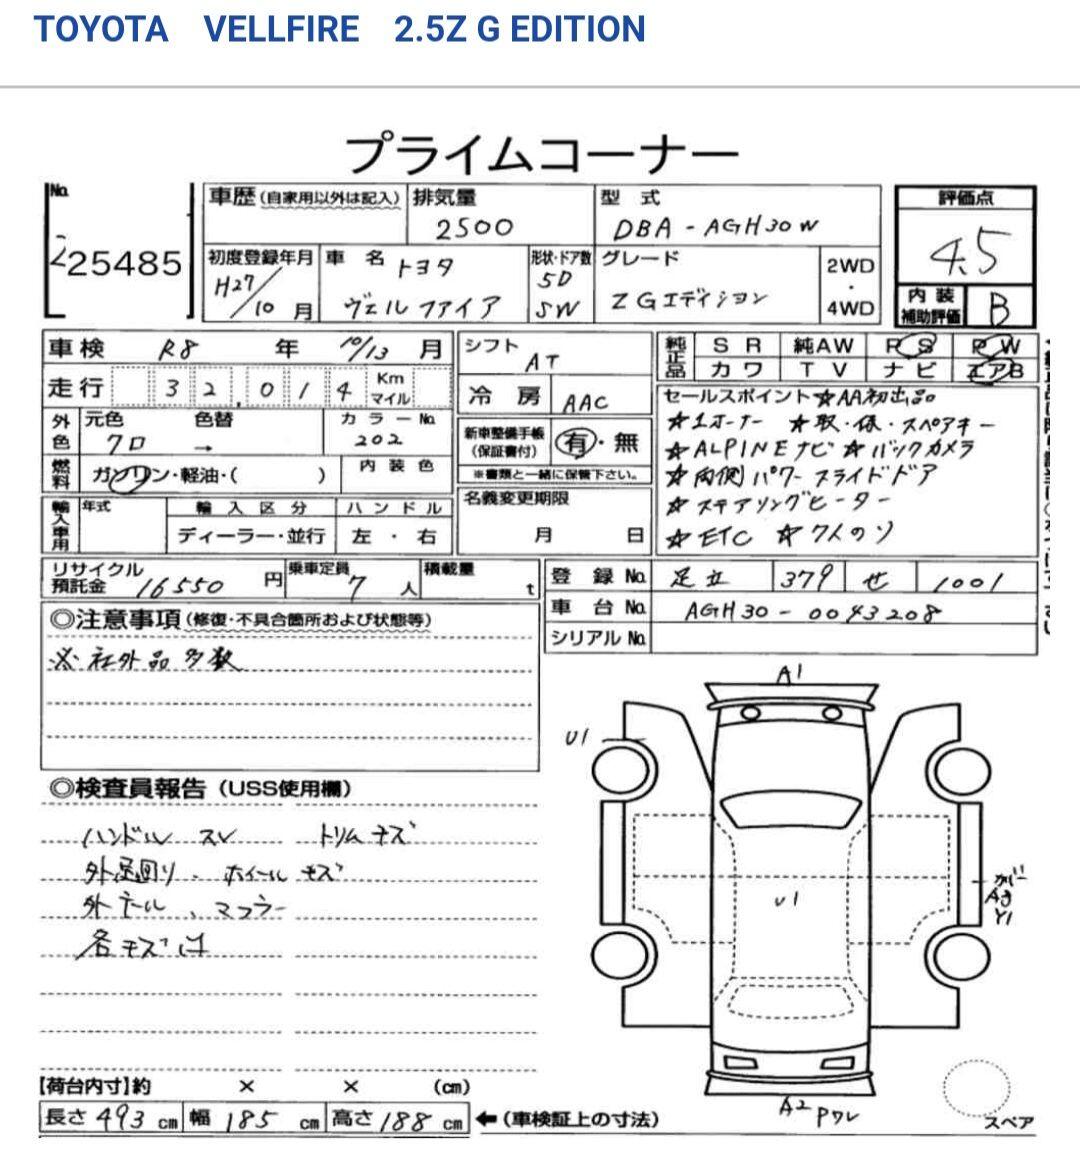 TOYOTA VELLFIRE 2.5Z G EDITION
プライムコーナー
No.
225485
車歴 (自家用以外は記入)
排気量
2500
型式
DBA-AGH30W
評価点
4.5
初度登録年月
H27/10月
車名
トヨタ
ヴェルファイア
形状・ドア数
5D
SW
グレード
ZGエディション
2WD
・
4WD
内装
補助評価
B
車検 R8年 10/13月
シフト
AT
純正品
SR 純AW PS PW
カワ TV ナビ エアB
走行 32,014 Km
マイル
冷房 AAC
外色
元色 色替
クロ →
カラーNo.
202
新車整備手帳
(保証書付)
有・無
※書類と一緒に保管下さい。
セールスポイント ☆AA初出品
☆1オーナー ☆取・保・スペアキー
☆ALPINEナビ ☆バックカメラ
☆両側パワースライドドア
☆ステアリングヒーター
☆ETC ☆7人のり
燃料
ガソリン・軽油・( )
内装色
名義変更期限
月 日
輸入車用
年式
輸入区分
ディーラー・並行
ハンドル
左・右
リサイクル
預託金 16550円
乗車定員
7人
積載量
t
登録No. 足立 379 せ 1001
車台No. AGH30-0043208
シリアルNo.
◎注意事項(修復・不具合箇所および状態等)
※社外品多数
◎検査員報告(USS使用欄)
ハンドルスレ トリムキズ
外足回り、ホイールキズ
外テール、マフラー
各キズ凹
A1
U1
U1
A3
Y1
A2
Pワレ
スペア
【荷台内寸】約 × × (cm)
長さ 493 cm 幅 185 cm 高さ 188 cm ←(車検証上の寸法)